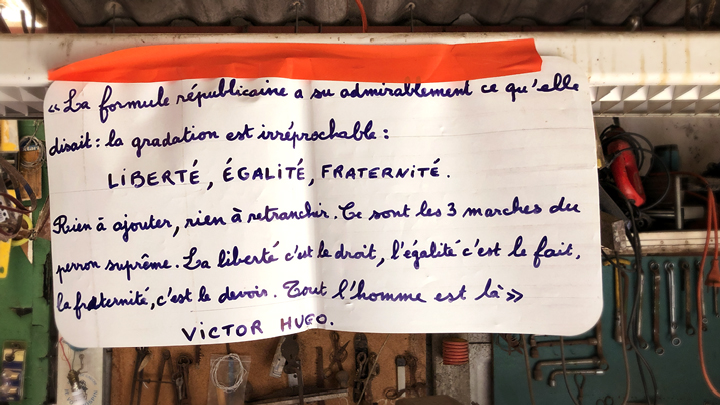 « La formule républicaine a su admirablement ce qu'elle
disait : la gradation est irréprochable :
LIBERTÉ, ÉGALITÉ, FRATERNITÉ.
Rien à ajouter, rien à retrancher. Ce sont les 3 marches du
perron suprême. La liberté c'est le droit, l'égalité c'est le fait,
la fraternité, c'est le devoir. Tout l'homme est là »
VICTOR HUGO.